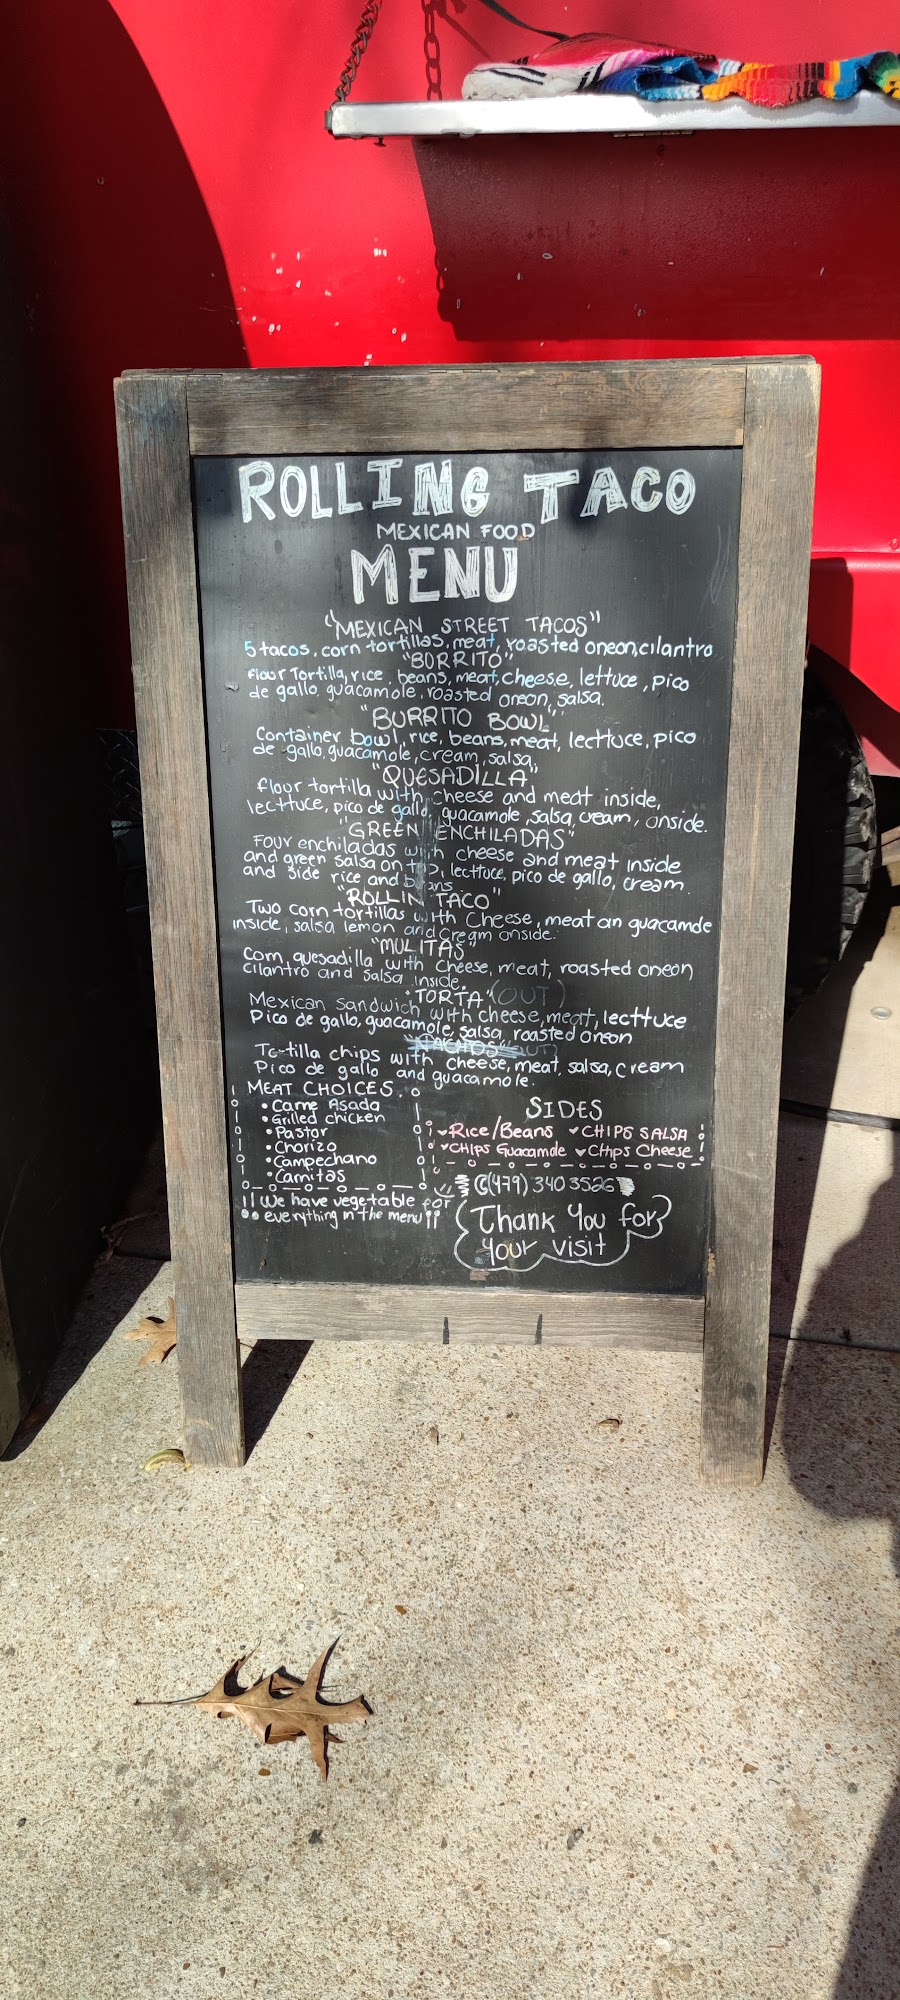 ROLLING TACO
MEXICAN FOOD
MENU
"MEXICAN STREET TACOS"
5 tacos, corn tortillas, meat, roasted oneon, cilantro
"BORRITO"
Flour Tortilla, rice, beans, meat, cheese, lettuce, pico
de gallo, guacamole, roasted oneon, salsa.
"BURRITO BOWL"
Container bowl, rice, beans, meat, lecttuce, pico
de gallo, guacamole, cream, salsa
"QUESADILLA"
flour tortilla with cheese and meat inside,
lecttuce, pico de gallo, guacamole, salsa, cream, onside.
"GREEN ENCHILADAS"
Four enchiladas with cheese and meat inside
and green salsa on top, lecttuce, pico de gallo, cream
and side rice and beans
"ROLLIN TACO"
Two corn tortillas with cheese, meat an guacamole
inside, salsa lemon and cream onside.
"MULITAS"
Corn, quesadilla with cheese, meat, roasted oneon
cilantro and salsa inside.
"TORTA" (OUT)
Mexican sandwich with cheese, meat, lecttuce
Pico de gallo, guacamole, salsa, roasted oneon
"NACHOS" (OUT)
Tortilla chips with cheese, meat, salsa, cream
Pico de gallo and guacamole.
MEAT CHOICES.
• Carne Asada
• Grilled chicken
• Pastor
• Chorizo
• Campechano
• Carnitas
!! We have vegetable for
everything in the menu !!
SIDES
Rice/Beans CHIPS SALSA
CHIPS Guacamole CHips Cheese
(479) 340 3526
Thank You for
your visit